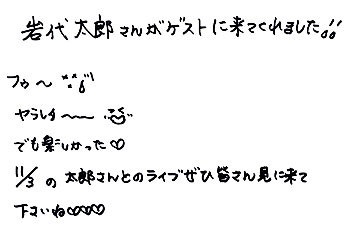 岩代太郎さんがゲストに来てくれました!!
フゥ〜
ヤラレタ〜〜
でも楽しかった♡
11/3の太郎さんとのライブぜひ皆さん見に来て
下さいね♡♡♡